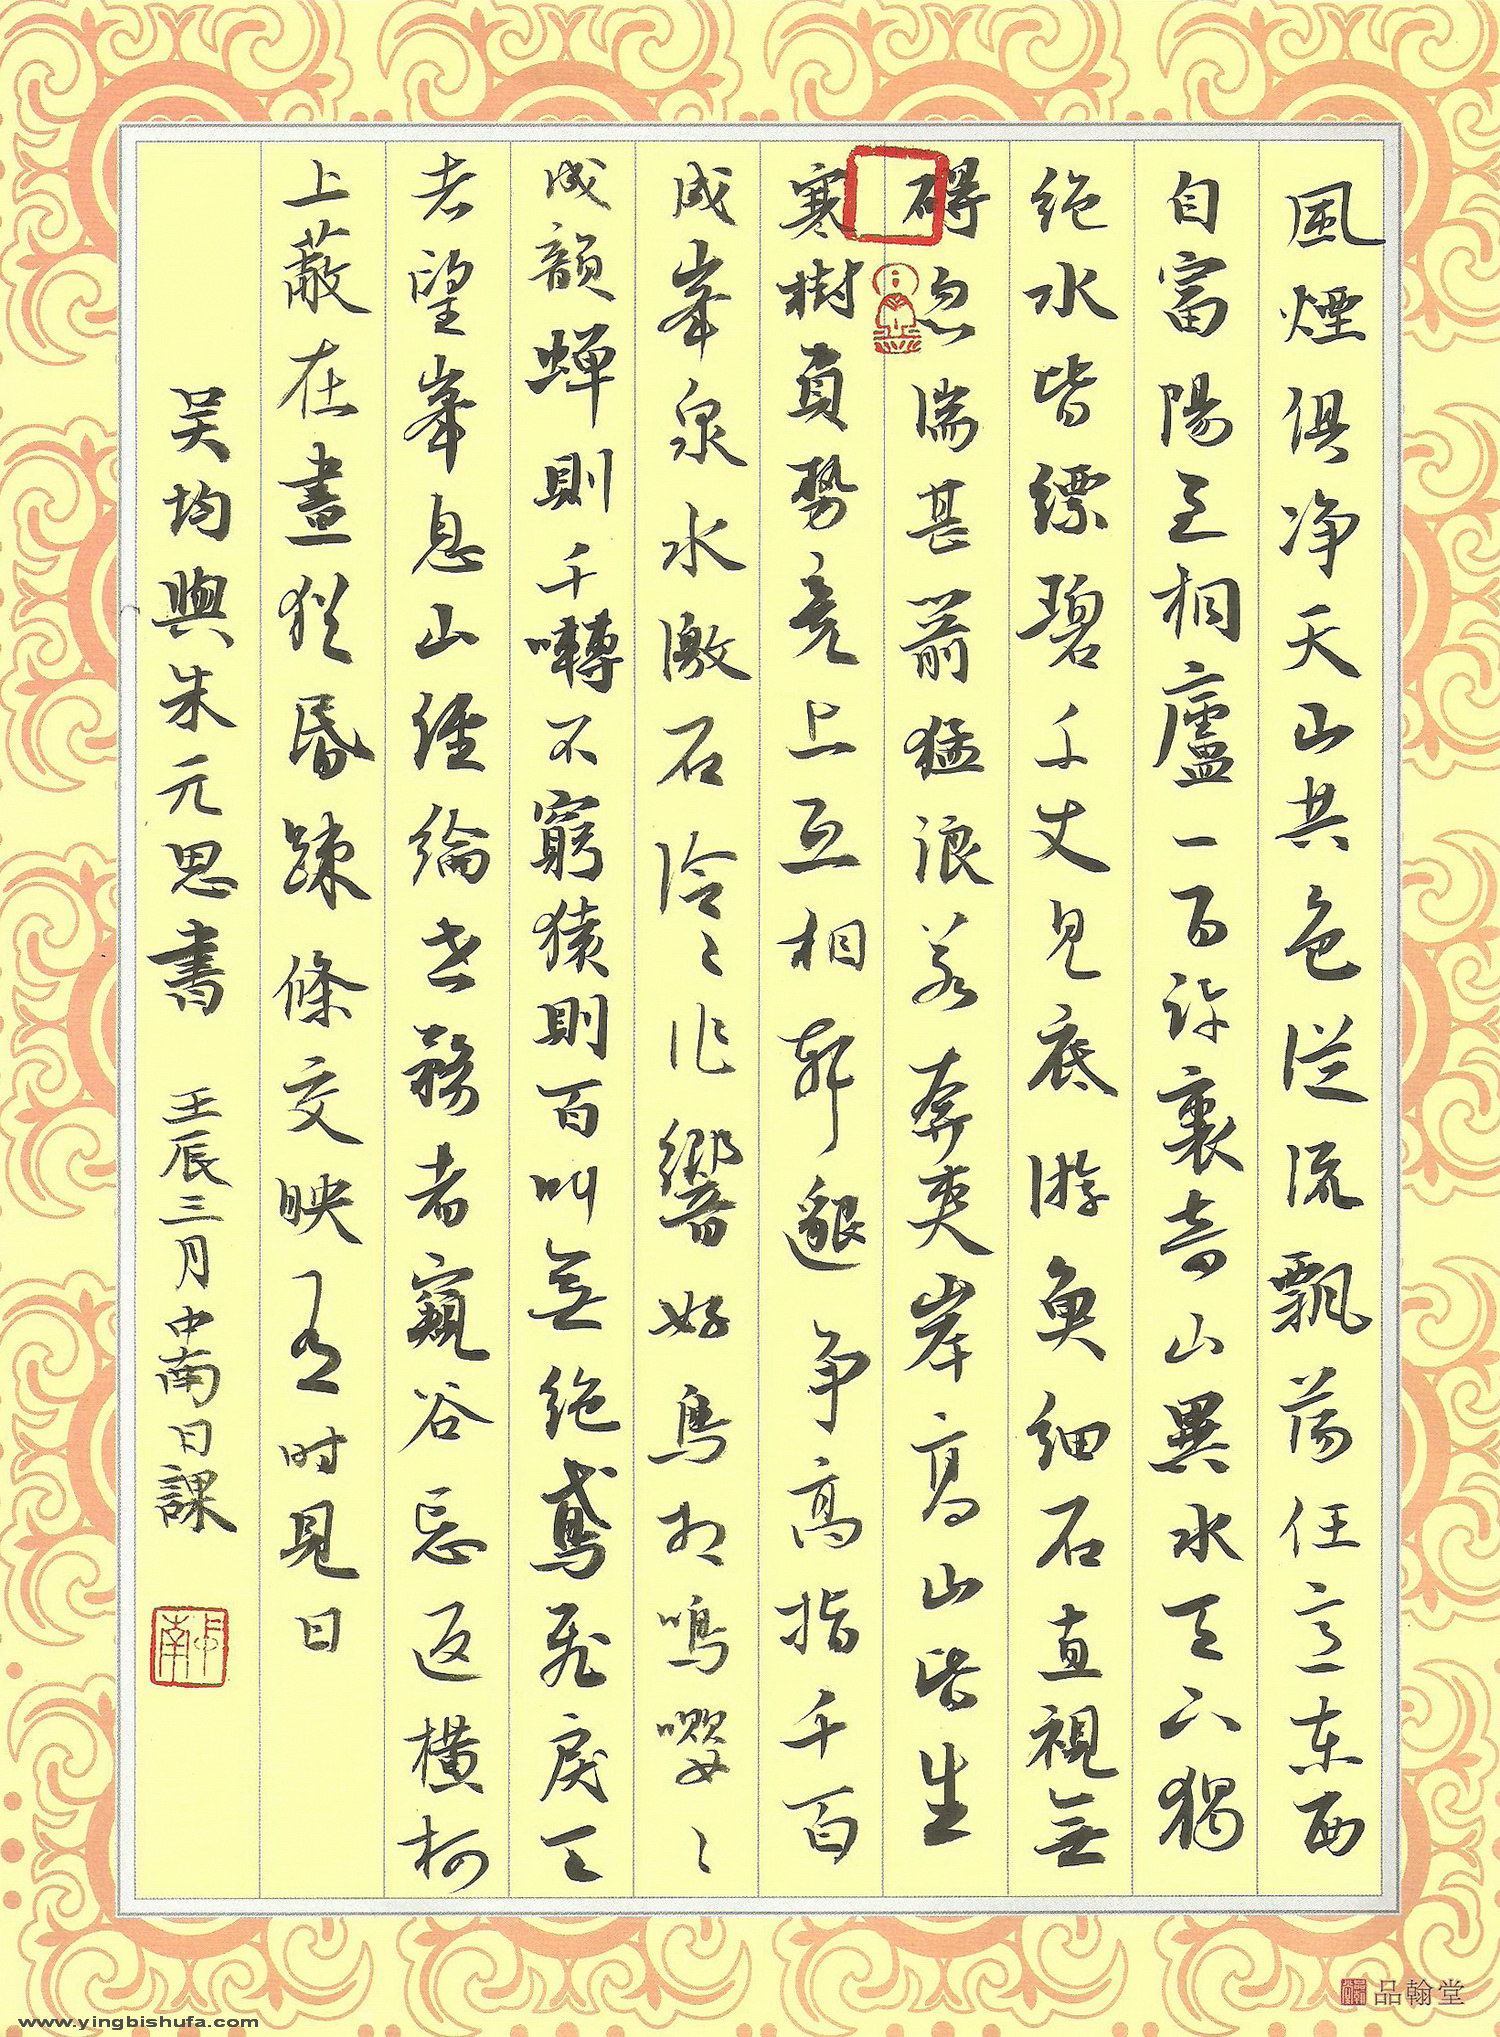 風煙俱净天山共色從流飄蕩任意东西
自富陽至桐廬一百許裏奇山異水天下獨
绝水皆缥碧千丈見底游魚细石直視無
碍急湍甚箭猛浪若奔夾岸高山皆生
寒樹負勢竞上互相軒邈争高指千百
成峯泉水激石泠々作響好鳥相鳴嚶々
成韻蝉則千囀不窮猿則百叫無绝鳶飛戾天
者望峯息山經綸世務者窺谷忘返横柯
上蔽在晝猶昏疎條交映有时見日
吴均與朱元思書 壬辰三月中南日課
品翰堂
www.yingbishufa.com